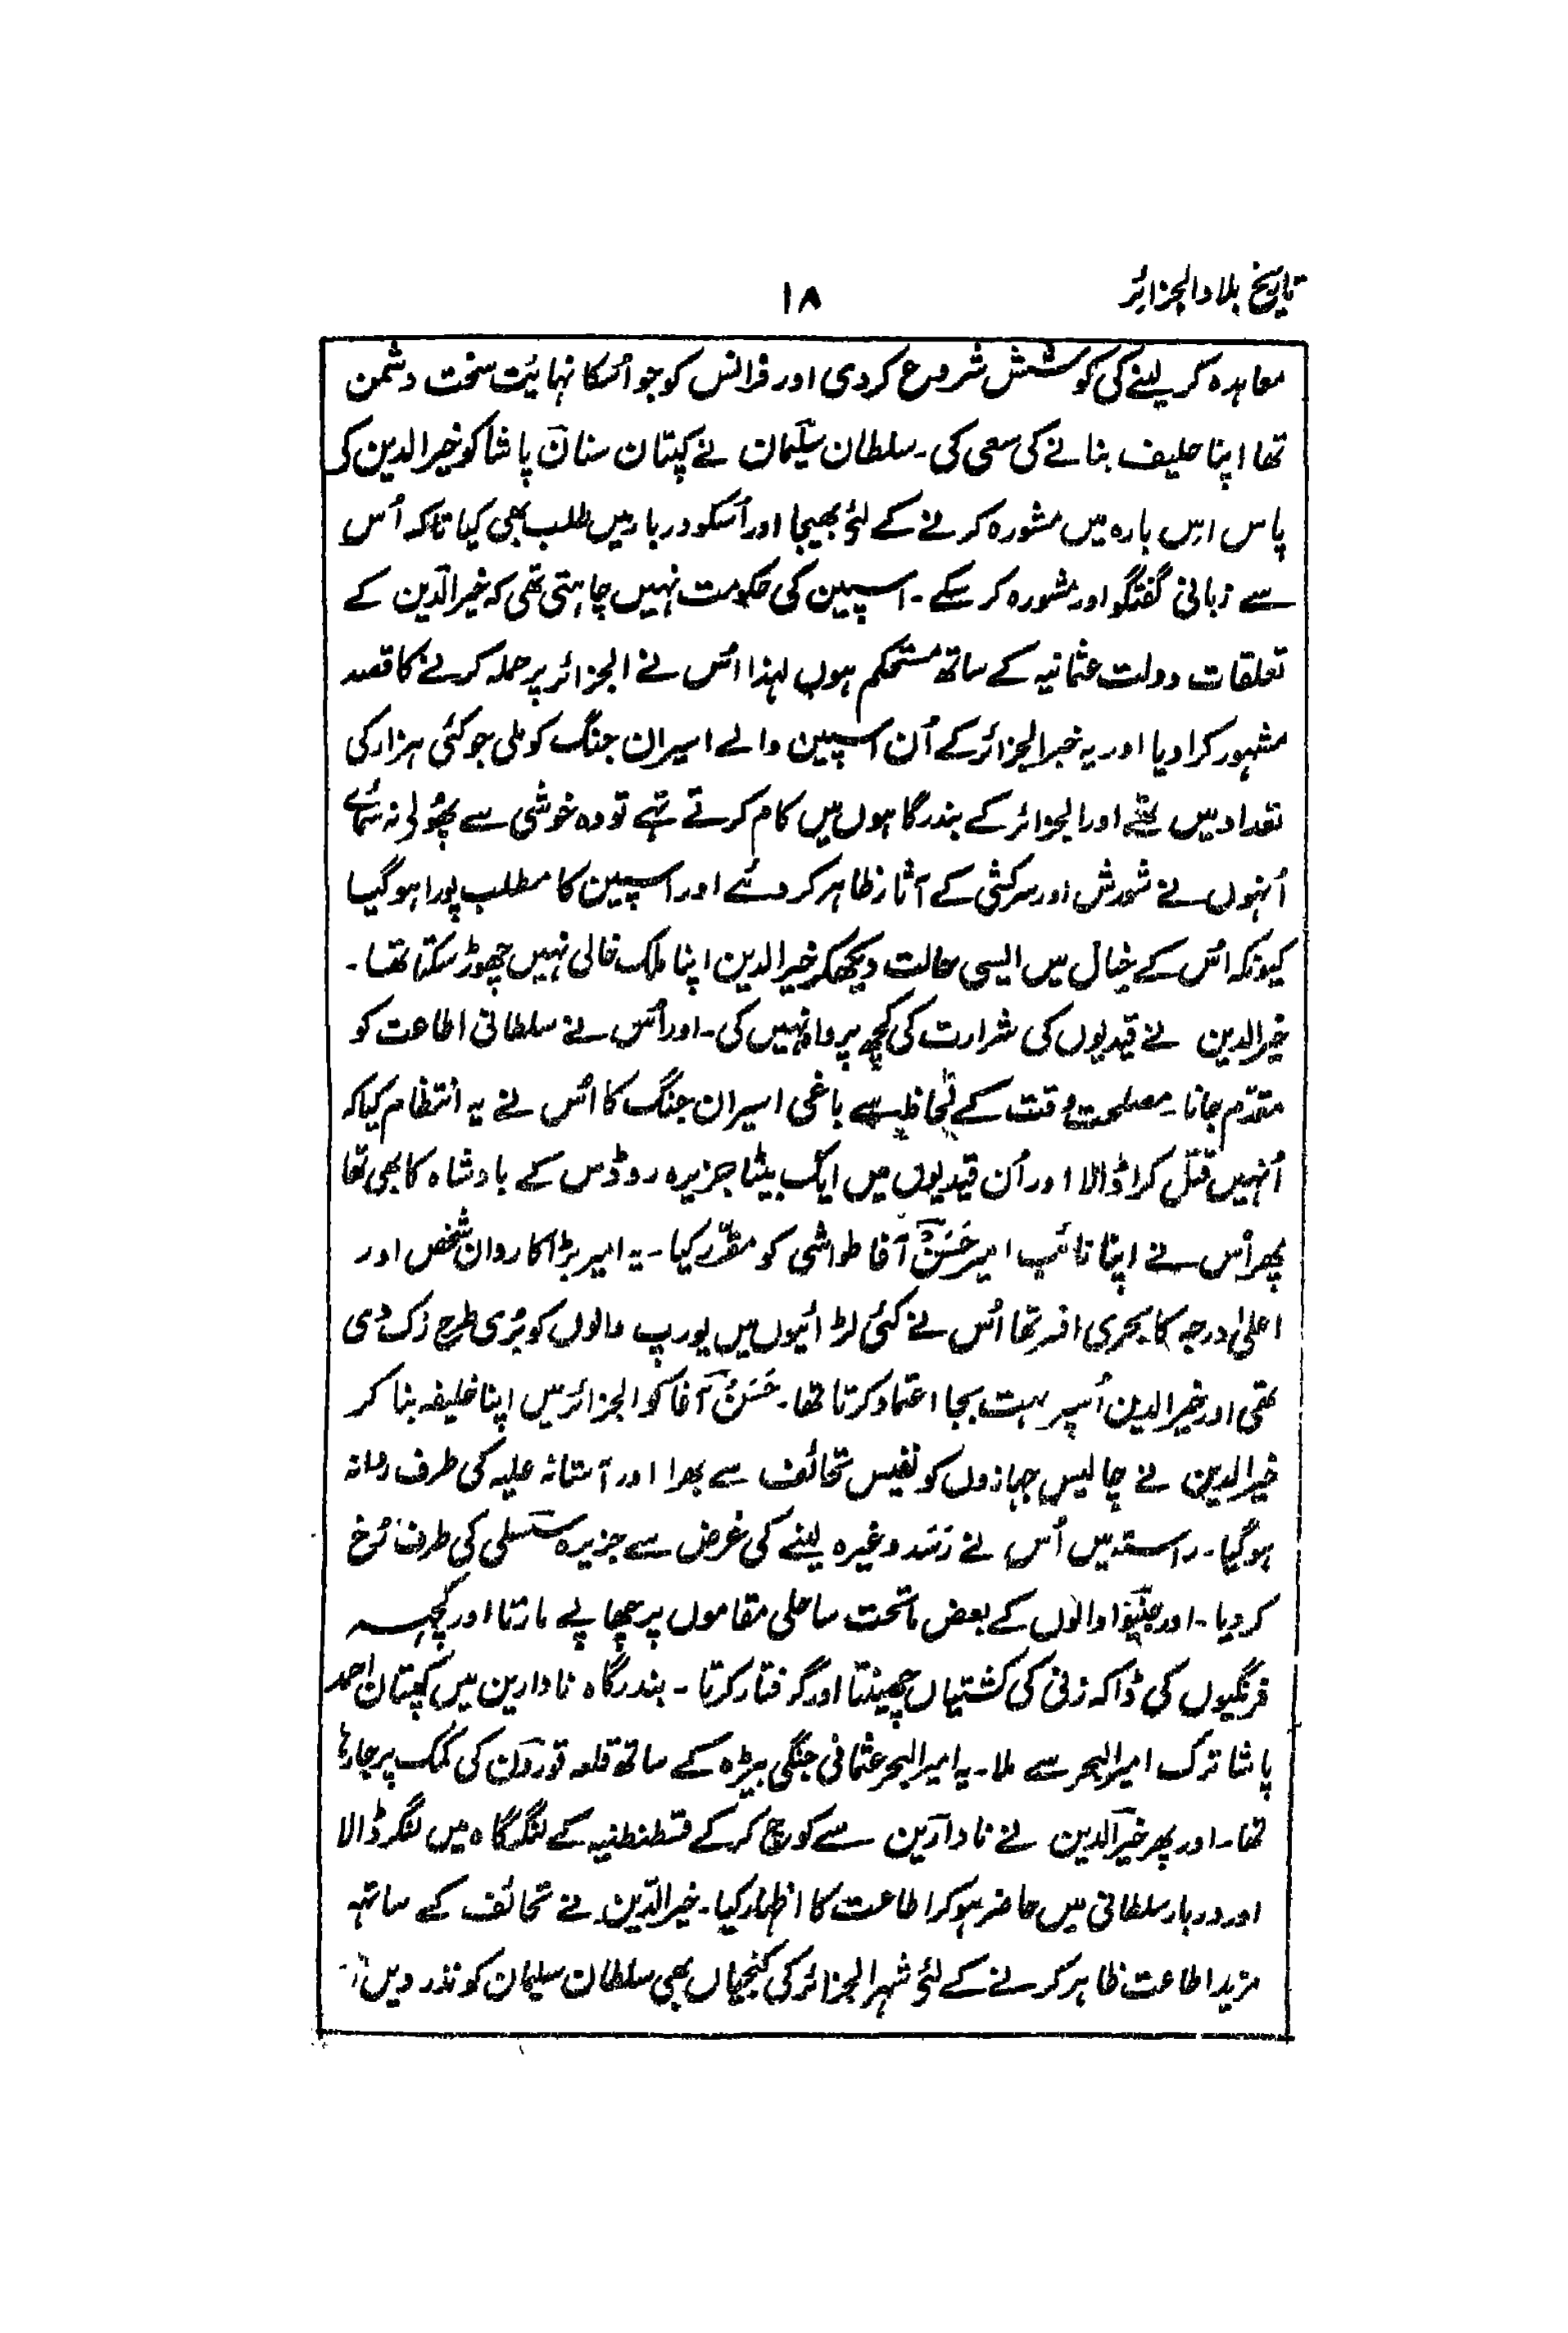 تاریخ بلاد الجزائر
۱۸
معاہدہ کر لینے کی کوشش شروع کردی اور فرانس کو جو اُسکا نہائیت سخت دشمن
تھا اپنا حلیف بنانے کی سعی کی۔ سلطان سلیمان نے کپتان سنان پاشا کو خیرالدین کی
پاس اس بارہ میں مشورہ کرنے کے لئے بھیجا اور اُسکو دربار میں طلب بھی کیا تاکہ اُس
سے زبانی گفتگو اور مشورہ کر سکے ۔ اسپین کی حکومت نہیں چاہتی تھی کہ خیرالدین کے
تعلقات دولت عثمانیہ کے ساتھ مستحکم ہوں لہذا اُس نے الجزائر پر حملہ کرنے کا قصد
مشہور کرا دیا اور یہ خبر الجزائر کے اُن اسپین والے اسیران جنگ کو ملی جو کئی ہزار کی
تعداد میں تھے اور الجزائر کے بندرگاہوں میں کام کرتے تہے تو وہ خوشی سے پھولی نہ سمائے
اُنہوں نے شورش اور سرکشی کے آثار ظاہر کردئے اور اسپین کا مطلب پورا ہوگیا
کیونکہ اُس کے خیال میں ایسی حالت دیکھکر خیرالدین اپنا ملک خالی نہیں چھوڑ سکتا تھا۔
خیرالدین نے قیدیوں کی شرارت کی کچھ پروا نہیں کی۔ اور اُس نے سلطانی اطاعت کو
مقدّم جانا۔ مصلحت وقت کے لحاظ سے باغی اسیران جنگ کا اُس نے یہ انتظام کیا کہ
اُنہیں قتل کرا ڈالا اور اُن قیدیوں میں ایک بیٹا جزیرہ روڈس کے بادشاہ کا بھی تھا
پھر اُس نے اپنا نائب امیر حَسَنْ آغا طواشی کو مقرّر کیا۔ یہ امیر بڑا کاروان شخص اور
اعلیٰ درجہ کا بحری افسر تھا اُس نے کئی لڑائیوں میں یورپ والوں کو بُری طرح زک دی
تھی اور خیرالدین اُسپر بہت بجا اعتماد کرتا تھا۔ حَسَنْ آغا کو الجزائر میں اپنا خلیفہ بنا کر
خیرالدین نے چالیس جہازوں کو نفیس تحائف سے بھرا اور آستانہ علیہ کی طرف روانہ
ہوگیا۔ راستہ میں اُس نے رَسَد وغیرہ لینے کی غرض سے جزیرہ سسلی کی طرف رُخ
کردیا۔ اور جنیوا والوں کے بعض ماتحت ساحلی مقاموں پر چھاپے مارتا اور کچہہ
فرنگیوں کی ڈاکہ زنی کی کشتیاں چھینتا اور گرفتار کرتا ۔ بندرگاہ نادارین میں کپتان احمد
پاشا ترک امیر البحر سے ملا۔ یہ امیر البحر عثمانی جنگی بیڑہ کے ساتھ قلعہ قورون کی کمک پر جارہا
تھا۔ اور پھر خیرالدین نے نادارین سے کوچ کرکے قسطنطنیہ کے لنگرگاہ میں لنگر ڈالا
اور دربار سلطانی میں حاضر ہوکر اطاعت کا اظہار کیا۔ خیرالدّین نے تحائف کے ساتہہ
مزید اطاعت ظاہر کرنے کے لئے شہر الجزائر کی کنجیاں بھی سلطان سلیمان کو نذر دیں